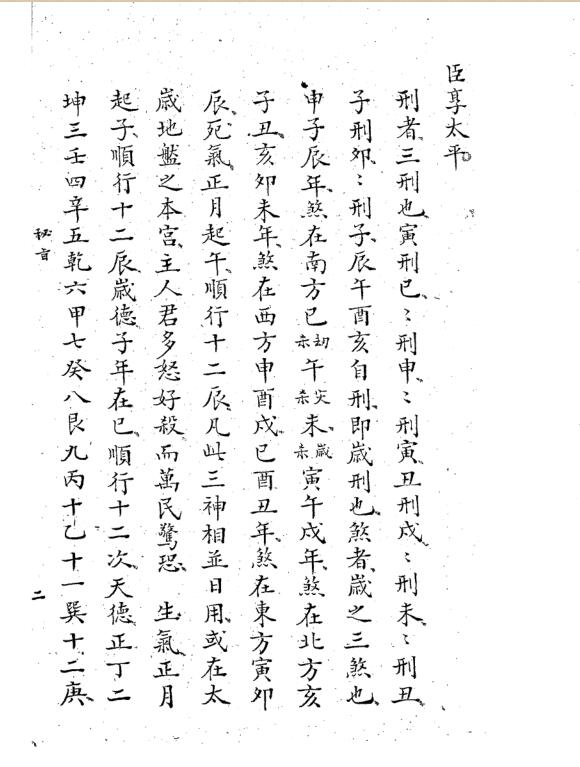 臣享太平
刑者三刑也寅刑巳〻刑申〻刑寅丑刑戌〻刑未〻刑丑
子刑卯〻刑子辰午酉亥自刑即歲刑也煞者歲之三煞也
申子辰年煞在南方巳劫杀午灾杀未歲杀寅午戌年煞在北方亥
子丑亥卯未年煞在西方申酉戌巳酉丑年煞在東方寅卯
辰死氣正月起午順行十二辰凡此三神相並日用或在太
歲地盤之本宮主人君多怒好殺而萬民驚恐　生氣正月
起子順行十二辰歲德子年在巳順行十二次天德正丁二
坤三壬四辛五乾六甲七癸八艮九丙十乙十一巽十二庚
秘旨
二